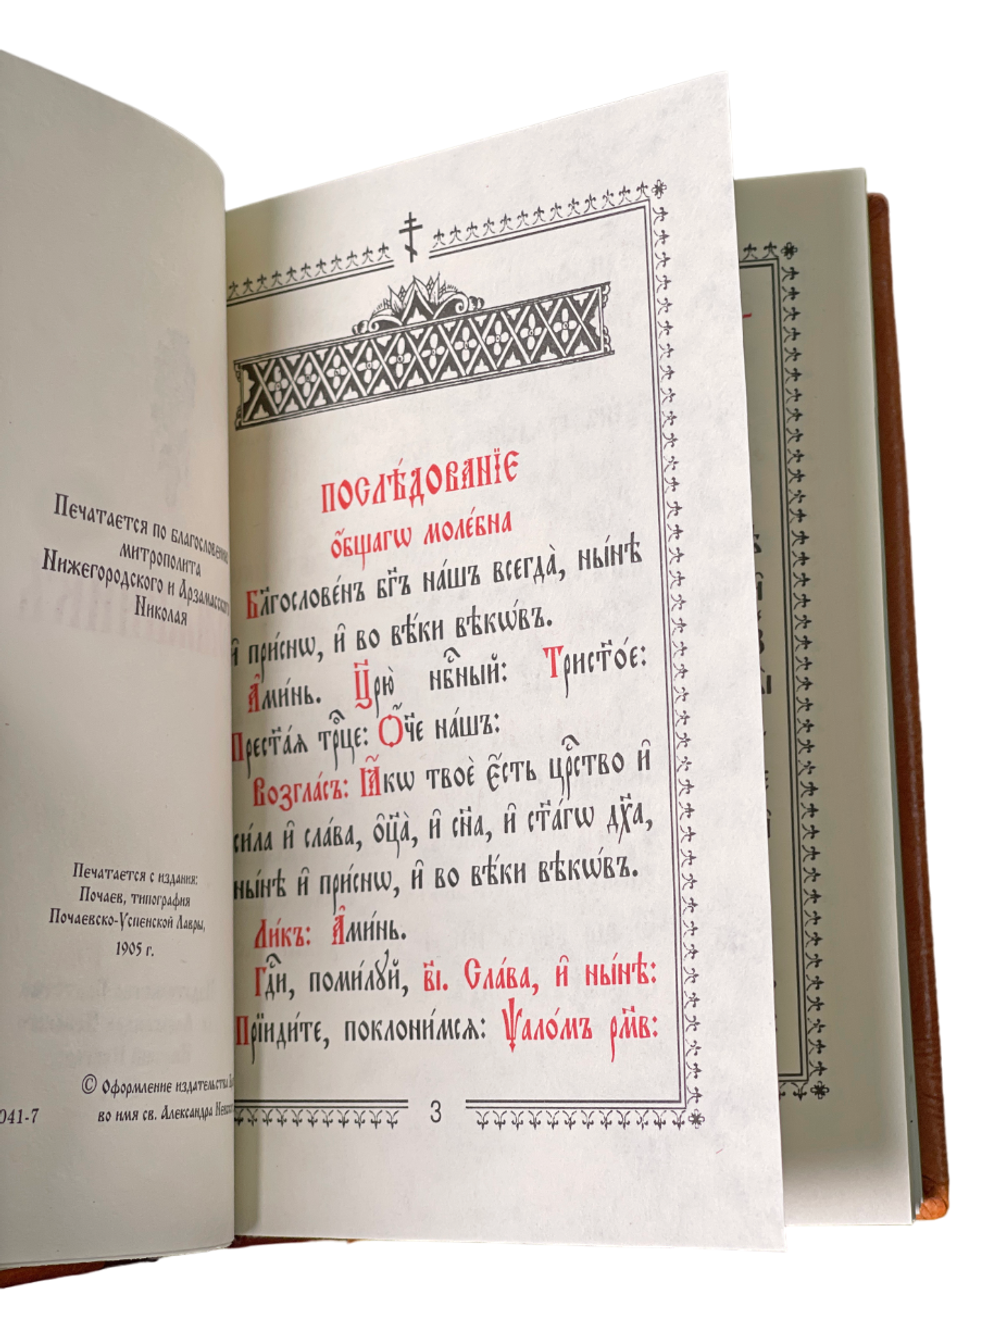 Печатается по благословению
митрополита
Нижегородского и Арзамасского
Николая
Печатается с издания:
Почаев, типография
Почаевско-Успенской Лавры,
1905 г.
© Оформление издательства
во имя св. Александра
041-7
ПОСЛѢ́ДОВАНЇЕ
ѻ҆́бщагѡ моле́бна
Бл҃гослове́нъ бг҃ъ на́шъ всегда̀, ны́нѣ
и҆ при́снѡ, и҆ во вѣ́ки вѣкѡ́въ.
А҆ми́нь. Цр҃ю̀ нбⷭ҇ный: Трист҃о́е:
Прест҃а́ѧ трⷪ҇це: Ѻ҆́ч҃е на́шъ:
Возгла́съ: Ꙗ҆́кѡ твоѐ є҆́сть црⷭ҇тво и҆
си́ла и҆ сла́ва, ѻ҆ц҃а̀, и҆ сн҃а, и҆ ст҃а́гѡ дх҃а,
ны́нѣ и҆ при́снѡ, и҆ во вѣ́ки вѣкѡ́въ.
Ли́къ: А҆ми́нь.
Гдⷭ҇и, поми́лꙋй, в҃і. Сла́ва, и҆ ны́нѣ:
Прїиди́те, поклони́мсѧ: Ѱало́мъ рм҃в:
3